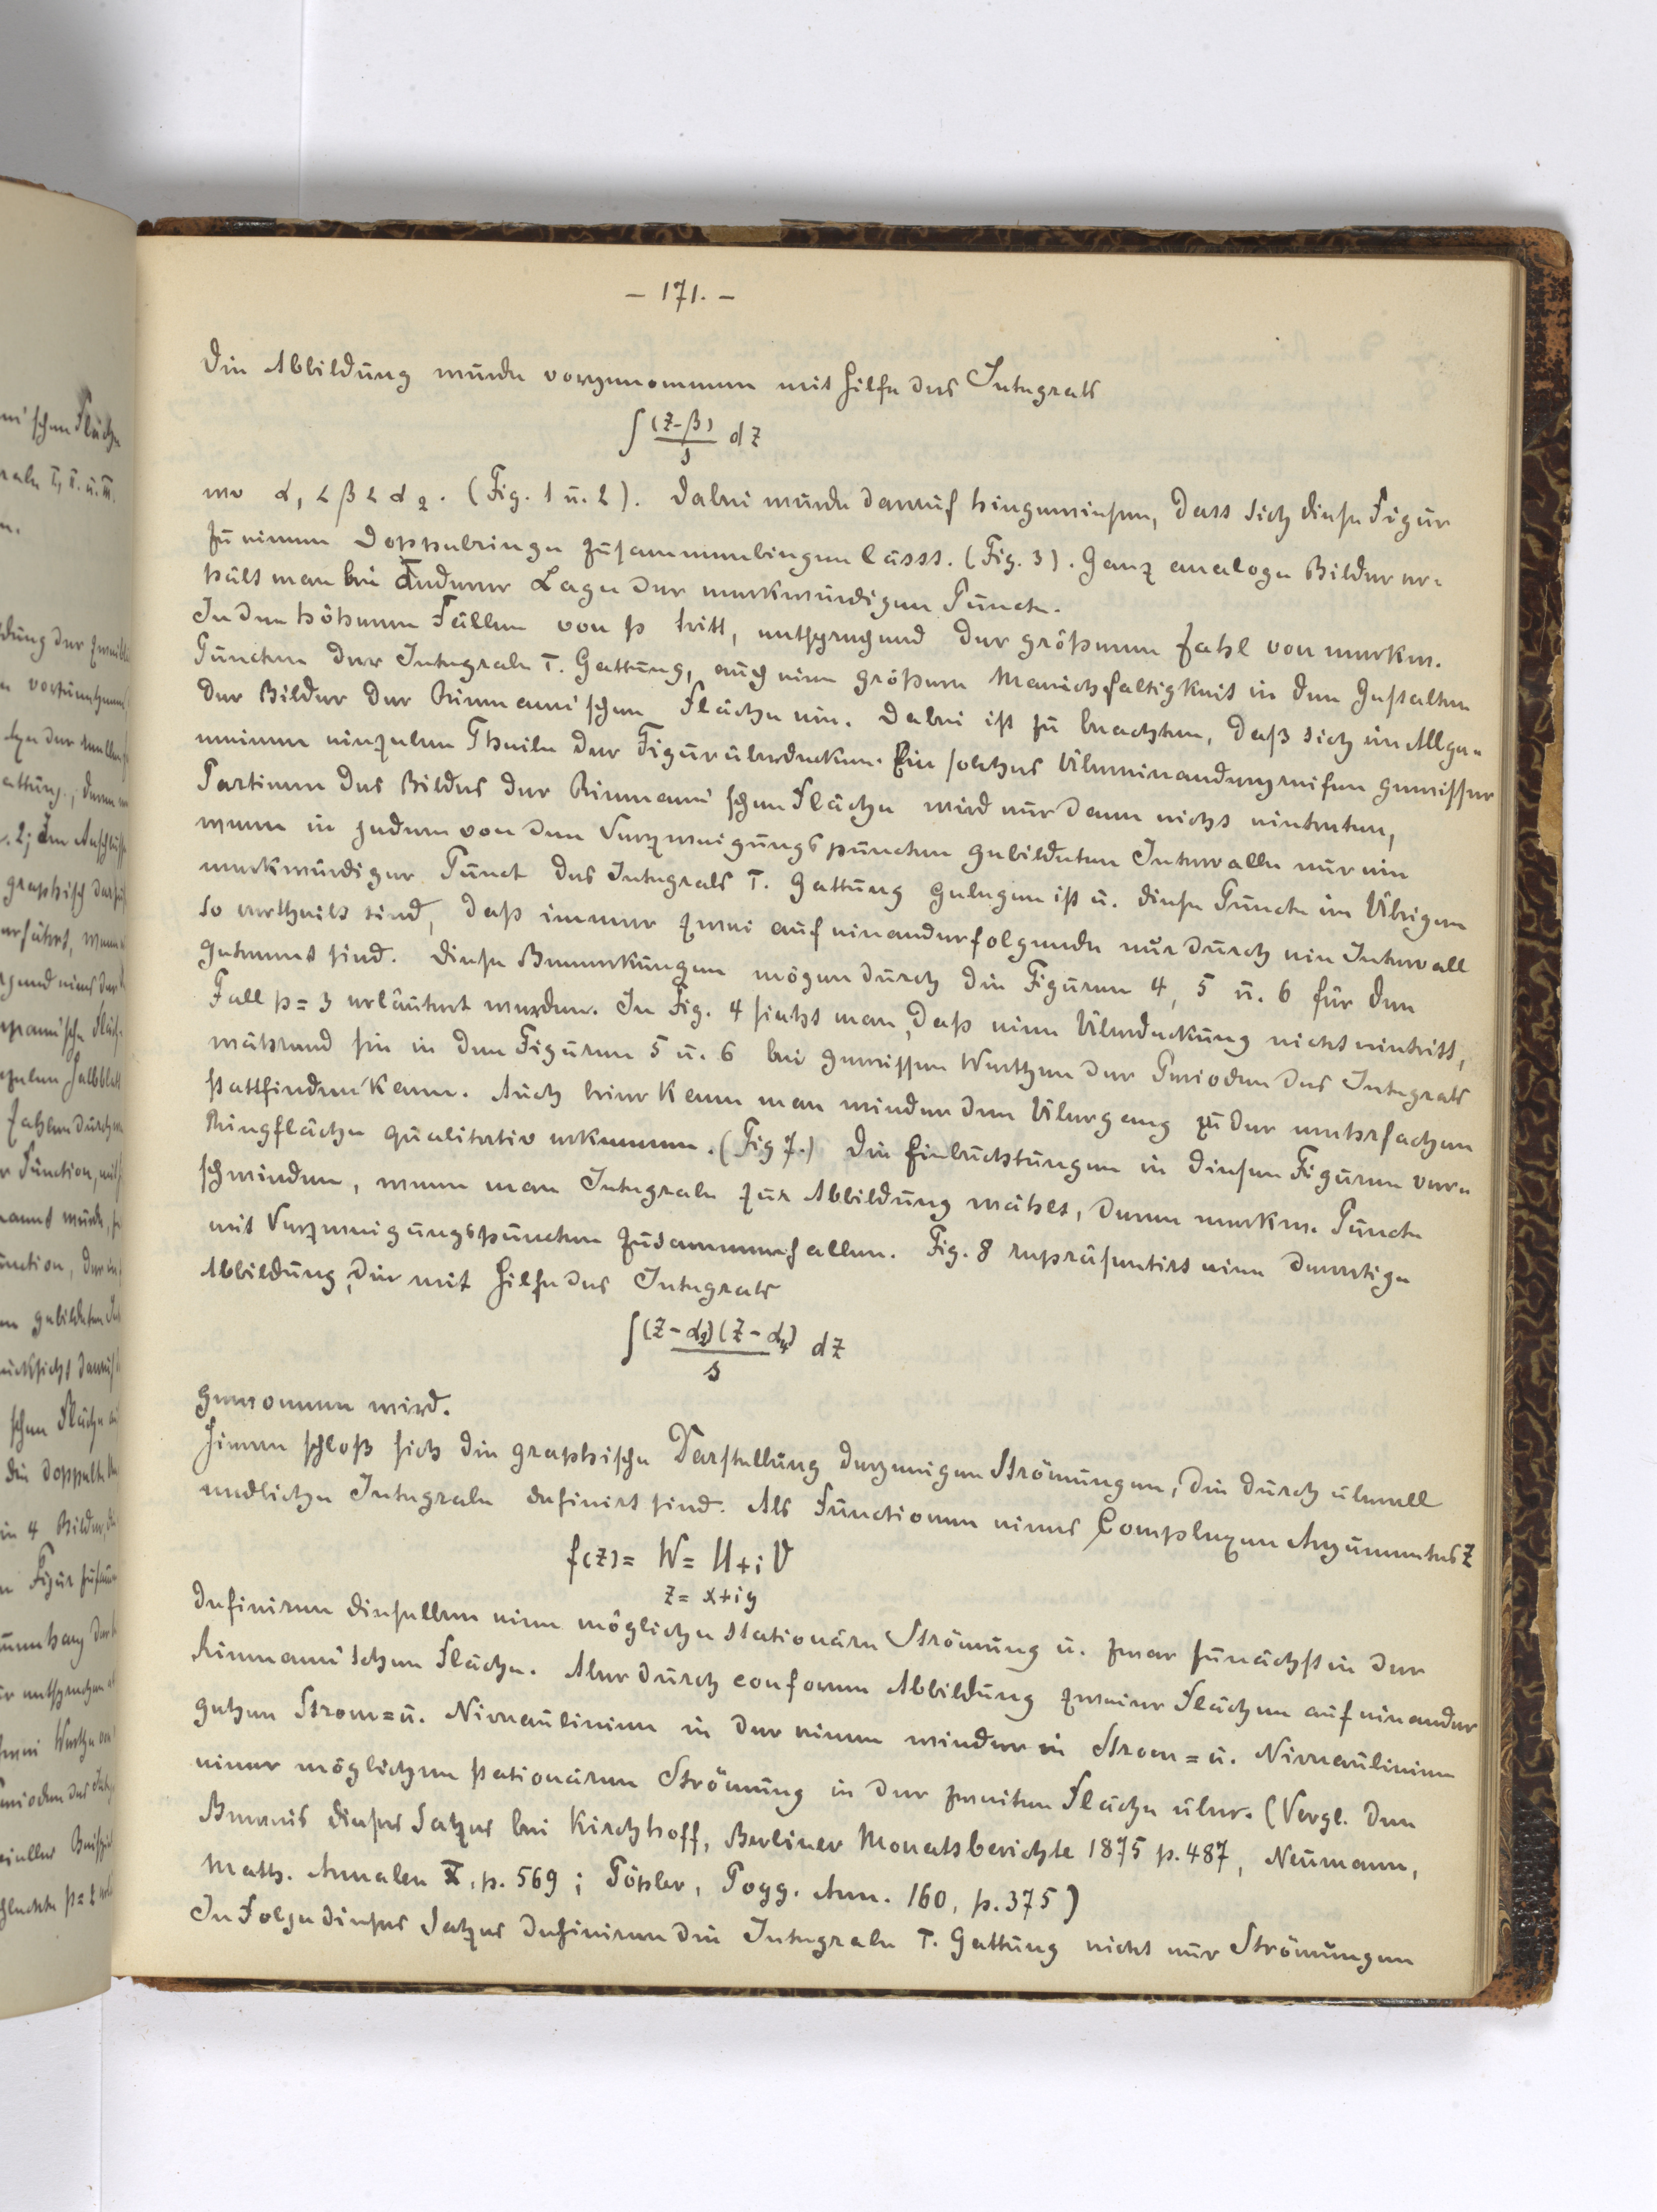 – 171. –
Die Abbildung wurde vorgenommen mit Hilfe des Integrals
∫ (z-β)/s dz
wo α₁ < β < α₂. (Fig. 1 u. 2). Dabei wurde darauf hingewiesen, dass sich diese Figur
zu einem Doppelringe zusammenbiegen lässt. (Fig. 3). Ganz analoge Bilder er=
hält man bei anderer Lage der merkwürdigen Puncte.
In den höheren Fällen von p tritt, entsprechend der größeren Zahl von merkw.
Puncten der Integrale I. Gattung, auch eine größere Manichfaltigkeit in den Gestalten
der Bilder der Riemann'schen Fläche ein. Dabei ist zu beachten, daß sich im Allge=
meinen einzelne Theile der Figur überdecken. Ein solches Übereinandergreifen gewisser
Partieen des Bildes der Riemann'schen Fläche wird nur dann nicht eintreten,
wenn in jedem von den Verzweigungspuncten gebildeten Intervalle nur ein
merkwürdiger Punct des Integrals I. Gattung gelegen ist u. diese Puncte im Übrigen
so vertheilt sind, daß immer zwei auf einanderfolgende nur durch ein Intervall
getrennt sind. Diese Bemerkungen mögen durch die Figuren 4, 5 u. 6 für den
Fall p = 3 erläutert werden. In Fig. 4 sieht man, daß eine Überdeckung nicht eintritt,
während sie in den Figuren 5 u. 6 bei gewissen Werthen der Perioden des Integrals
stattfinden kann. Auch hier kann man wieder den Übergang zu der mehrfachen
Ringfläche qualitativ erkennen. (Fig 7.) Die Einbuchtungen in diesen Figuren ver=
schwinden, wenn man Integrale zur Abbildung wählt, deren merkw. Puncte
mit Verzweigungspuncten zusammenfallen. Fig. 8 repräsentirt eine derartige
Abbildung, die mit Hilfe des Integrals
∫ (z - α₂)(z - α₄)/s dz
gewonnen wird.
Hieran schloß sich die graphische Darstellung derjenigen Strömungen, die durch überall
endliche Integrale definirt sind. Als Functionen eines Complexen Argumentes z
f(z) = W = U + i V
z = x + i y
definiren dieselben eine mögliche stationäre Strömung u. zwar zunächst in der
Riemann'schen Fläche. Aber durch conforme Abbildung zweier Flächen auf einander
gehen Strom= u. Niveaulinien in der einen wieder in Strom= u. Niveaulinien
einer möglichen stationären Strömung in der zweiten Fläche über. (Vergl. den
Beweis dieses Satzes bei Kirchhoff, Berliner Monatsberichte 1875 p. 487, Neumann,
Math. Annalen X, p. 569; Töpler, Pogg. Ann. 160, p. 375)
In Folge dieses Satzes definiren die Integrale I. Gattung nicht nur Strömungen